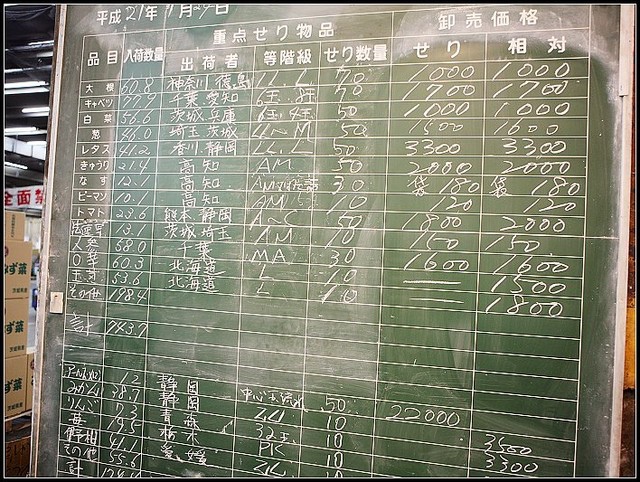 平成21年11月29日
重点せり物品 卸売価格
品目 入荷数量 出荷者 等階級 せり数量 せり 相対
大根 60.8 神奈川 徳島 LL.L 70 1000 1000
キャベツ 77.9 千葉 愛知 6玉.8玉 70 1700 1700
白菜 56.6 茨城 兵庫 6玉.4玉 50 1000 1000
葱 埼玉 茨城 L〜M 50 1500 1600
レタス 41.2 香川 静岡 LL.L 50 3300 3300
きゅうり 21.4 高知 AM 50 2000 2000
なす 12.1 高知 30 袋180 袋180
ピーマン 10.1 高知 AM 10 120 120
トマト 23.6 熊本 静岡 A〜C 50 1800 2000
13.1 茨城 埼玉 AM 10 150 150
人参 58.0 千葉 MA 30 1600 1600
60.3 北海道 L 10 1500
玉葱 53.6 北海道 L 10 1800
その他 198.4
合計 743.7
1.2 静岡
みかん 38.7 静岡 50
りんご 7.3 青森 10 22000
苺 19.5 栃木 10
41.1 愛媛 10 3500
その他 55.6 10 3300
計
全面禁
みず菜
みず菜
みず菜